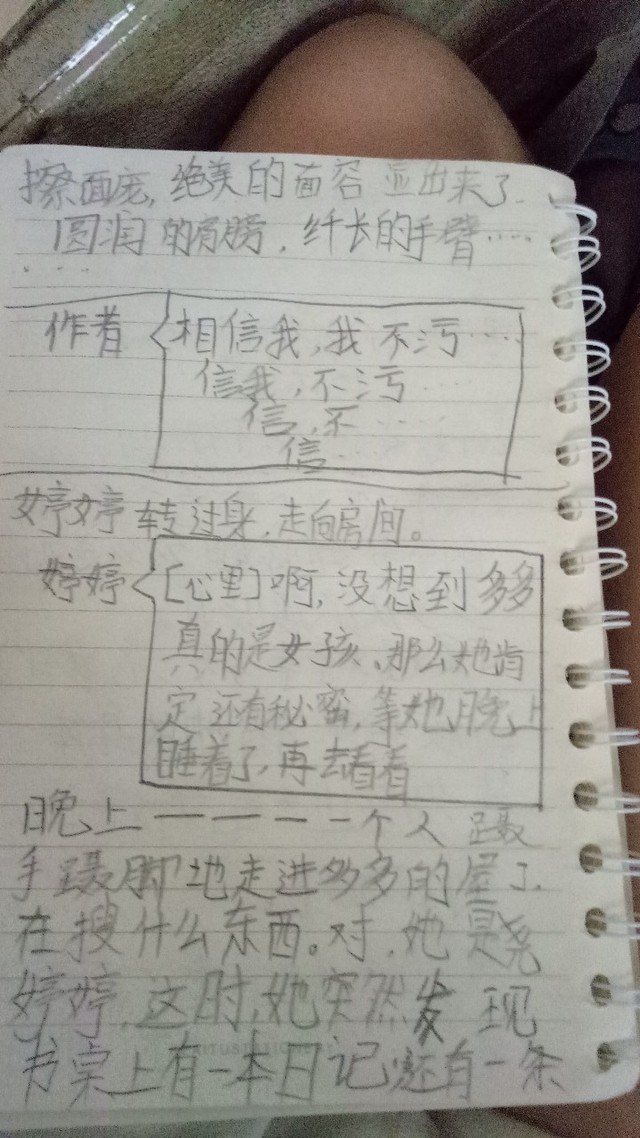 擦面庞，绝美的面容显出来了.
圆润的肩膀，纤长的手臂……
....
作者 相信我，我不污……
信我，不污……
信，不……
信……
婷婷转过身，走向房间。
婷婷 [心里]啊，没想到多多
真的是女孩、那么她肯
定还有秘密，等她晚上
睡着了，再去看看
晚上－－－－一个人蹑
手蹑脚地走进多多的屋子
在搜什么东西。对，她是
婷婷，这时，她突然发现
书桌上有一本日记还有一条